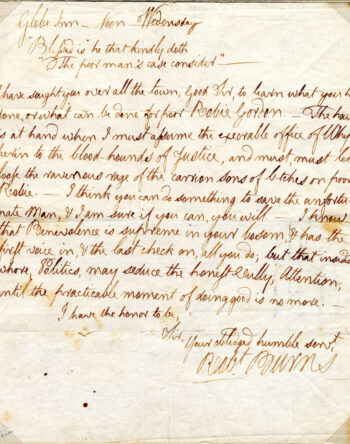 Globe Inn — Noon Wednesday
"Blessed is he that kindly doth
"The poor man's case consider" —
have sought you over all the town, Good Sir, to learn what you h
done, or what can be done for poor Robie Gordon. — The hou
is at hand when I must assume the execrable office of Whip
herin to the blood hounds of Justice, and must, must let
loose the ravenous rage of the carrion sons of bitches on poor
Robie. — I think you can do something to save the unfortu
nate Man, & I am sure if you can, you will. — I know
that Benevolence is supreme in your bosom, & has the
first voice in, & the last check on, all you do; but that insid
whore, Politics, may seduce the honest Cully, Attention,
until the practicable moment of doing good is no more.
I have the honor to be,
Sir,
Your obliged humble servt
Robt Burns